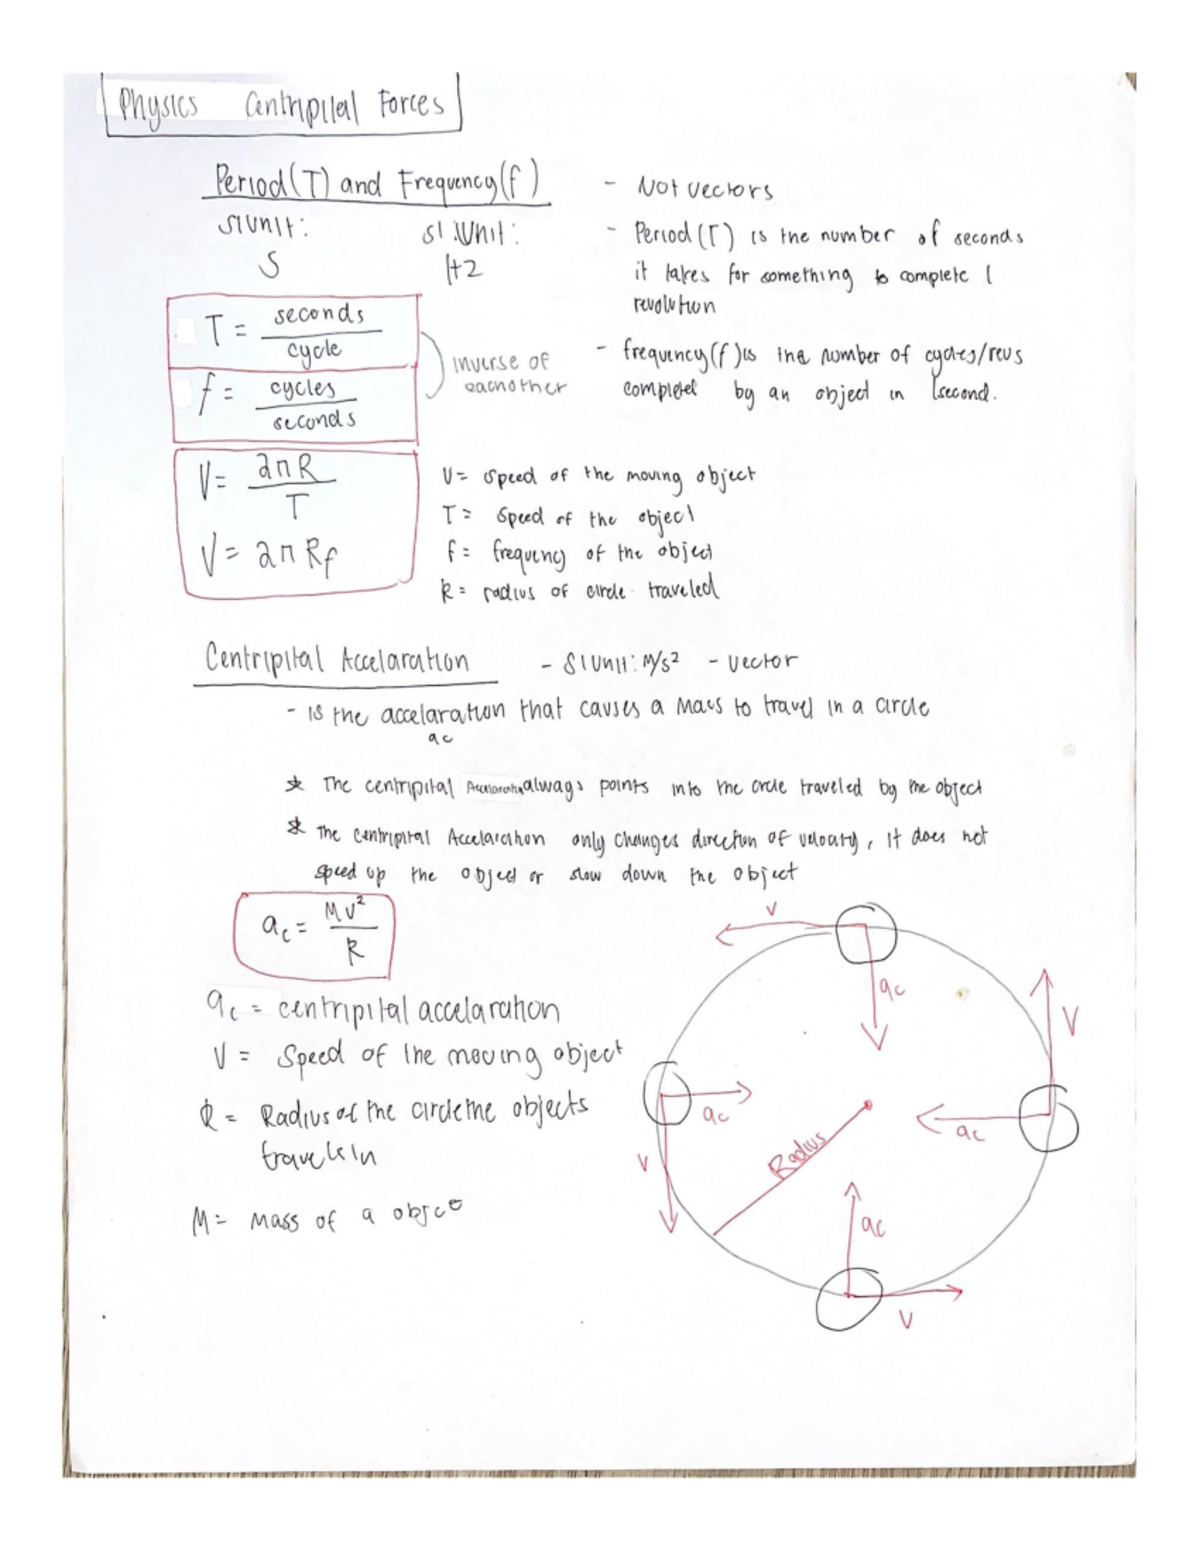 Physics Centripital Forces
Period(T) and Frequency(f)
SI Unit: SI Unit:
S Hz
- Not vectors
- Period(T) is the number of seconds
it takes for something to complete 1
revolution
- frequency(f) is the number of cycles/revs
completed by an object in 1second.
T = seconds
cycle
f = cycles
seconds
inverse of
eachother
V = 2πR
T
V = 2πRf
V = speed of the moving object
T = Speed of the object
f = frequency of the object
R = radius of circle traveled
Centripital Accelaration - SI Unit: M/s² - vector
- is the accelaration that causes a Mass to travel in a circle
ac
* The centripital Accelaration always points into the circle traveled by the object
* The centripital Accelaration only changes direction of velocity, it does not
speed up the object or slow down the object
ac = MV²
R
ac = centripital accelaration
V = Speed of the moving object
R = Radius of the circle the objects
travels in
M = Mass of a object
V
ac
V
ac
ac
V
Radius
ac
V